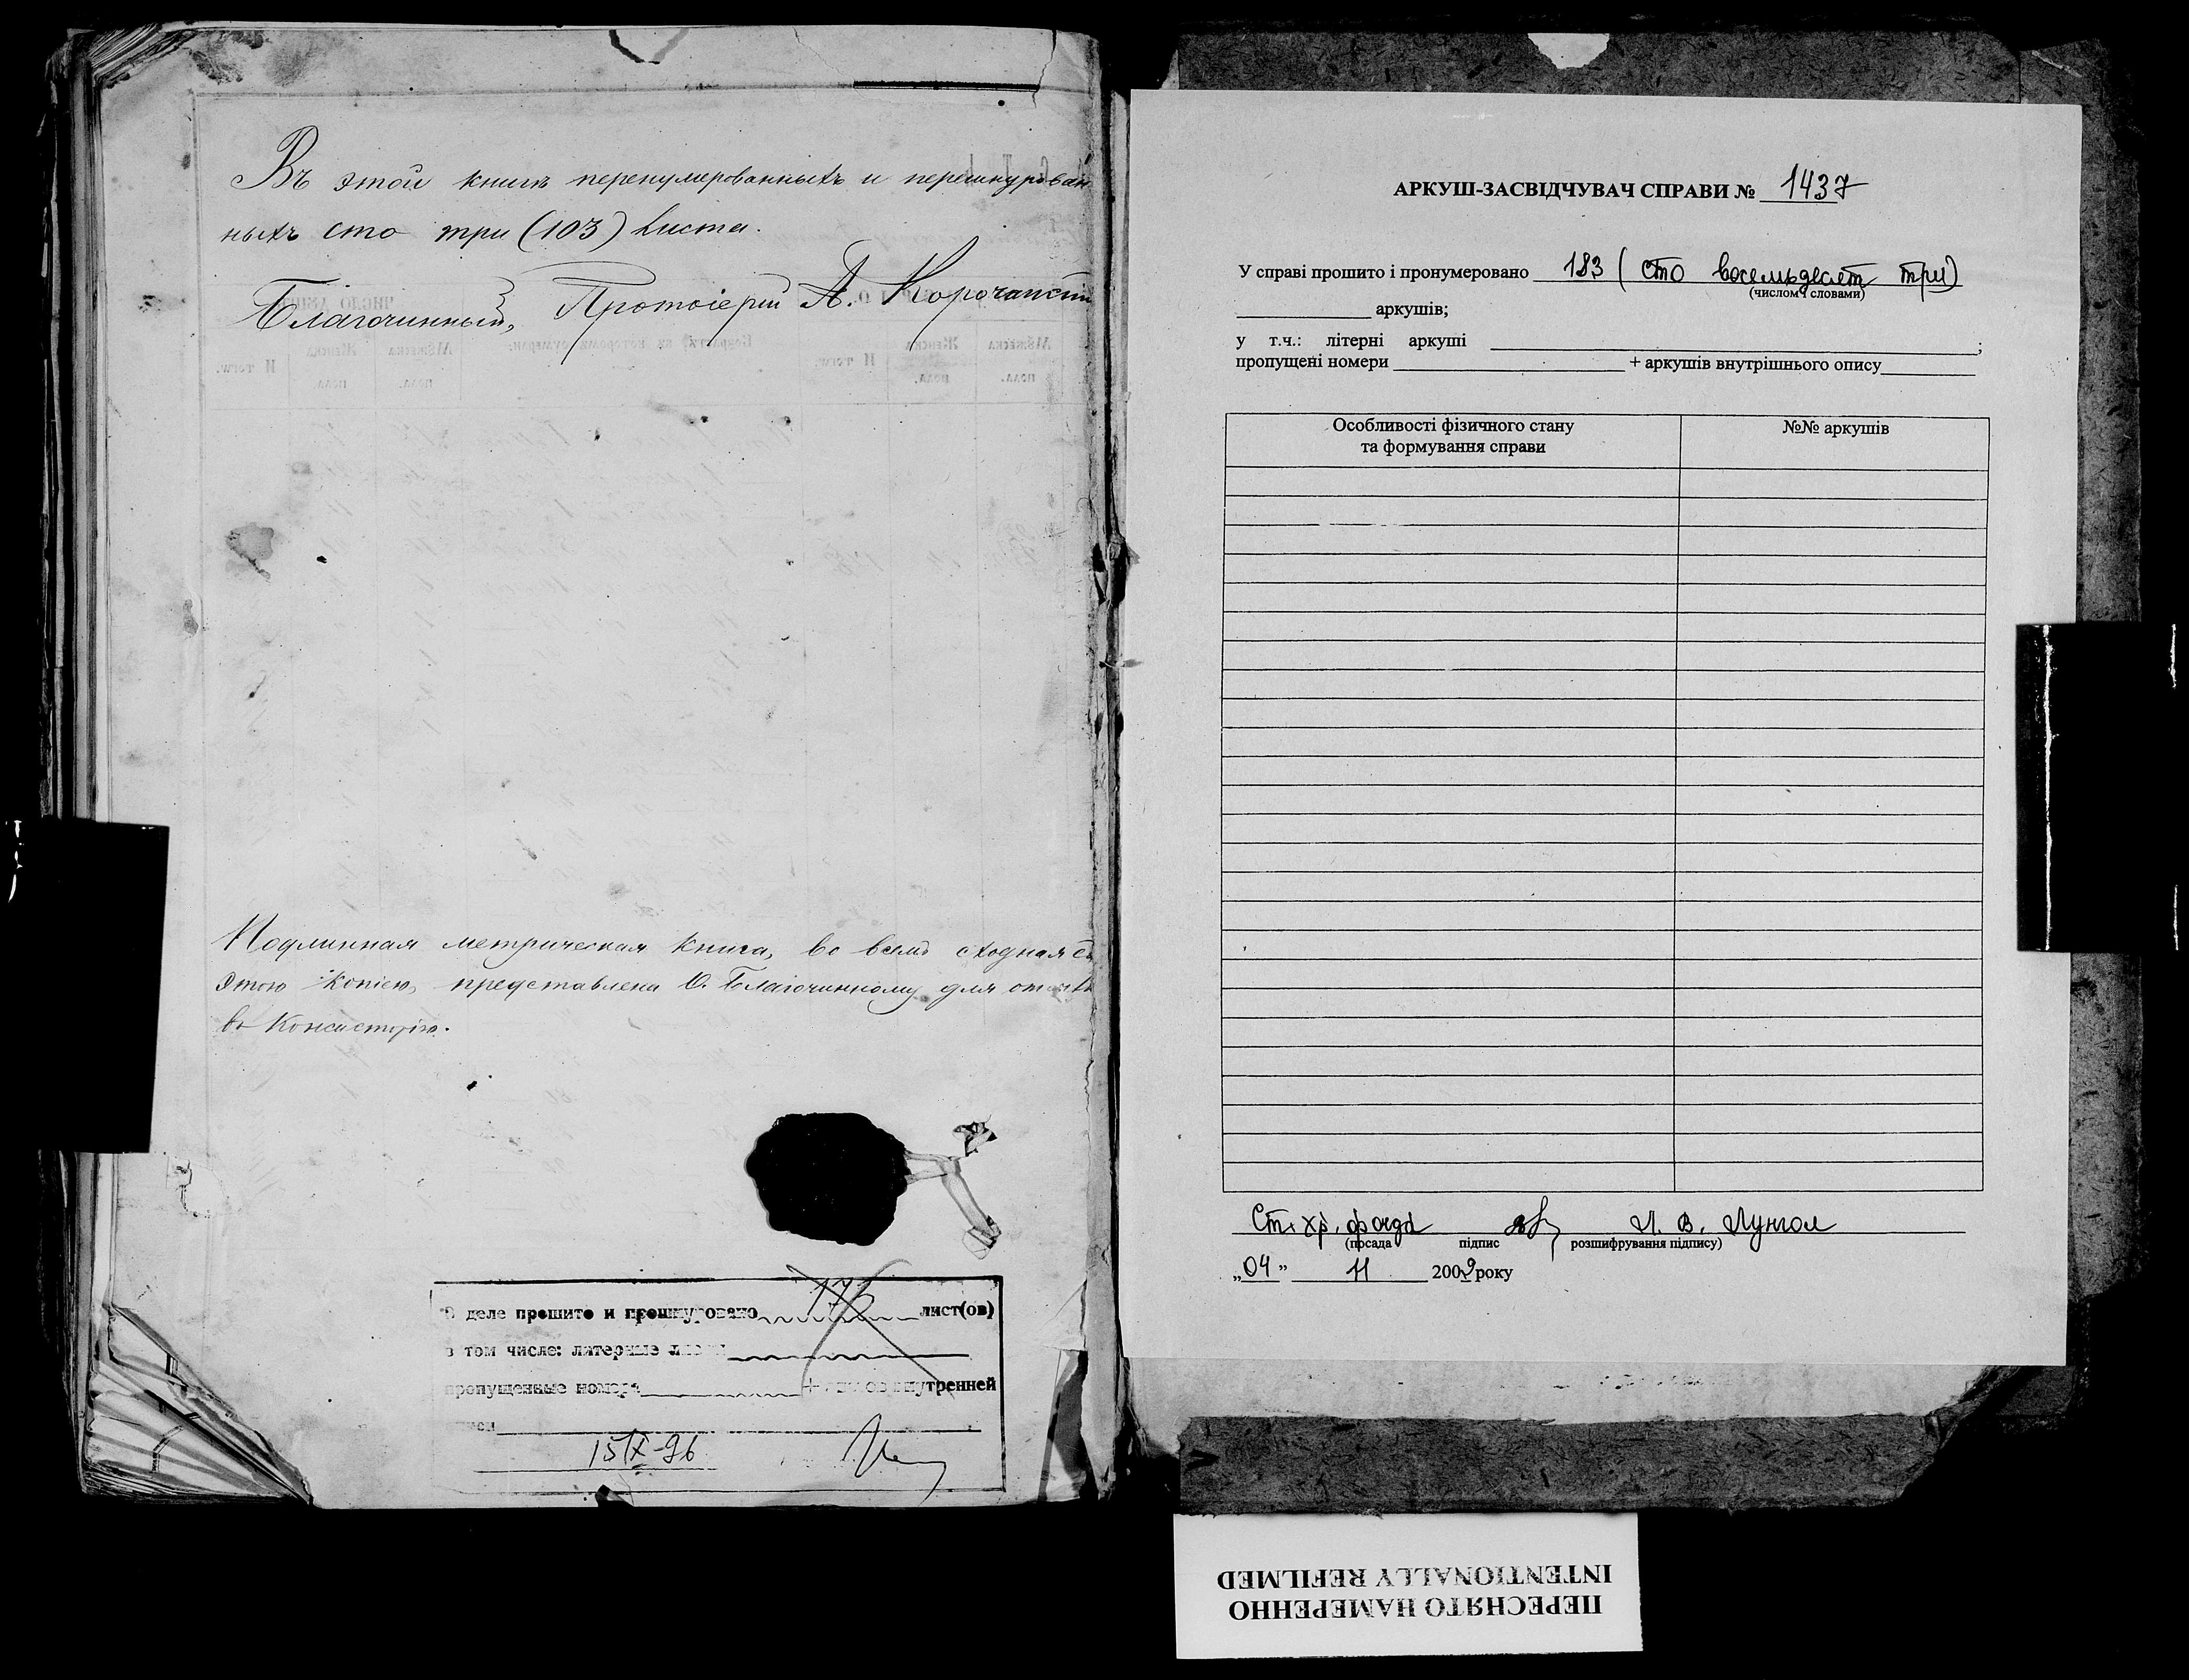 Въ этой книгѣ перенумерованныхъ и перешнурован
ныхъ сто три (103) листа.
Благочинный, Протоіерей А. Корочанскій
Подлинная метрическая книга, во всемъ сходная съ
этою копіею, представлена О. Благочинному для
въ Консисторію.
В деле прошито и прошнуровано 176 лист(ов)
в том числе: литерные листы
пропущенные номера + листов внутренней
описи
15/X-96
АРКУШ-ЗАСВІДЧУВАЧ СПРАВИ № 1437
У справі прошито і пронумеровано 183 (сто восемьдесят три)
(числом і словами)
аркушів;
у т.ч.: літерні аркуші ;
пропущені номери + аркушів внутрішнього опису
Особливості фізичного стану
та формування справи
№№ аркушів
Ст. хр. фонда Л. В. Лунгол
(посада підпис розшифрування підпису)
„04” 11 2009 року
ПЕРЕСНЯТО НАМЕРЕННО
INTENTIONALLY REFILMED